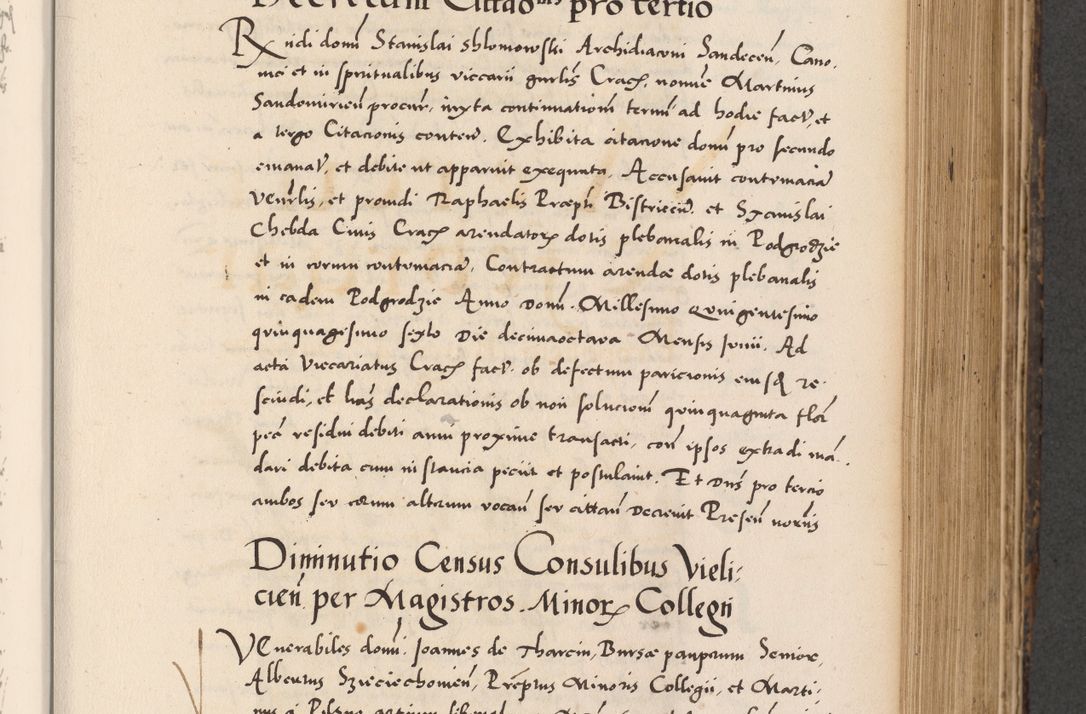 Decretum Citaōnis pro tertio
Rndi domī Stanislai Shlomowski Archidiaconi Sandeceñ, Cano,
nici et in spiritualibus viccarii gnrlis Crac̄, nomine Martinus
Sandomirieñ procur̄, iuxta continuationem termī ad hodie fact̄, et
a tergo Citacionis conten̄. Exhibita citacione domī pro secundo
emanat̄, et debite ut apparuit exequuta, Accusavit contumaciā
Venrlis, et providi Raphaelis Præpti Bistriceñ. et Stanislai
Chebda Civis Crac̄ arendatorꝝ dotis plebanalis in Podgrodzie
et in eorum contumaciā, Contractum arendæ dotis plebanalis
in eadem Podgrodzie Anno Domī. Millesimo Quingentesimo
quinquagesimo sexto Die decimaoctava Mensis Junii. Ad
acta Viccariatus Crac̄ fact̄. ob defectum paricionis eiusꝗ re-
scindi, et has declarationis ob non solucionem quinquaginta flor̄
pec̄ residui debiti anni proxime transacti, con̄ ipsos extradi man-
dari debita cum instancia peciit et postulavit. Et Dn̄s pro tercio
ambos seu eorum alterum vocan̄ seu cittan̄ Decrevit Presen̄ noriis
Diminutio Census Consulibus Vieli-
cien̄ per Magistros. Minorꝝ Collegii
VEnerabiles domī. Joannes de Tharcin, Bursæ pauperum Senior,
Albertus Szieciechowień, Præptus Minoris Collegii, et Marti-
nus a Pilzno artium liberal̄